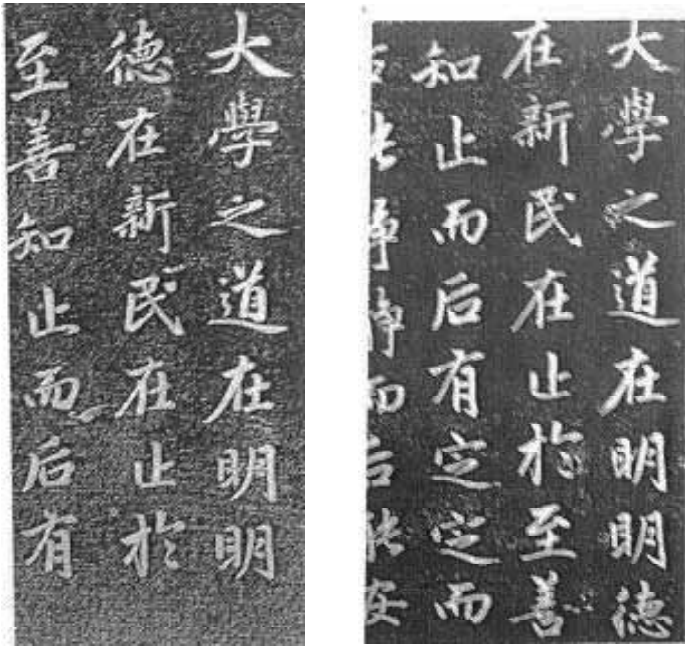 大學之道在明明
德在新民在止於
至善知止而后有
大學之道在明明德
在新民在止於至善
知止而后有定定而
后能靜靜而后能安